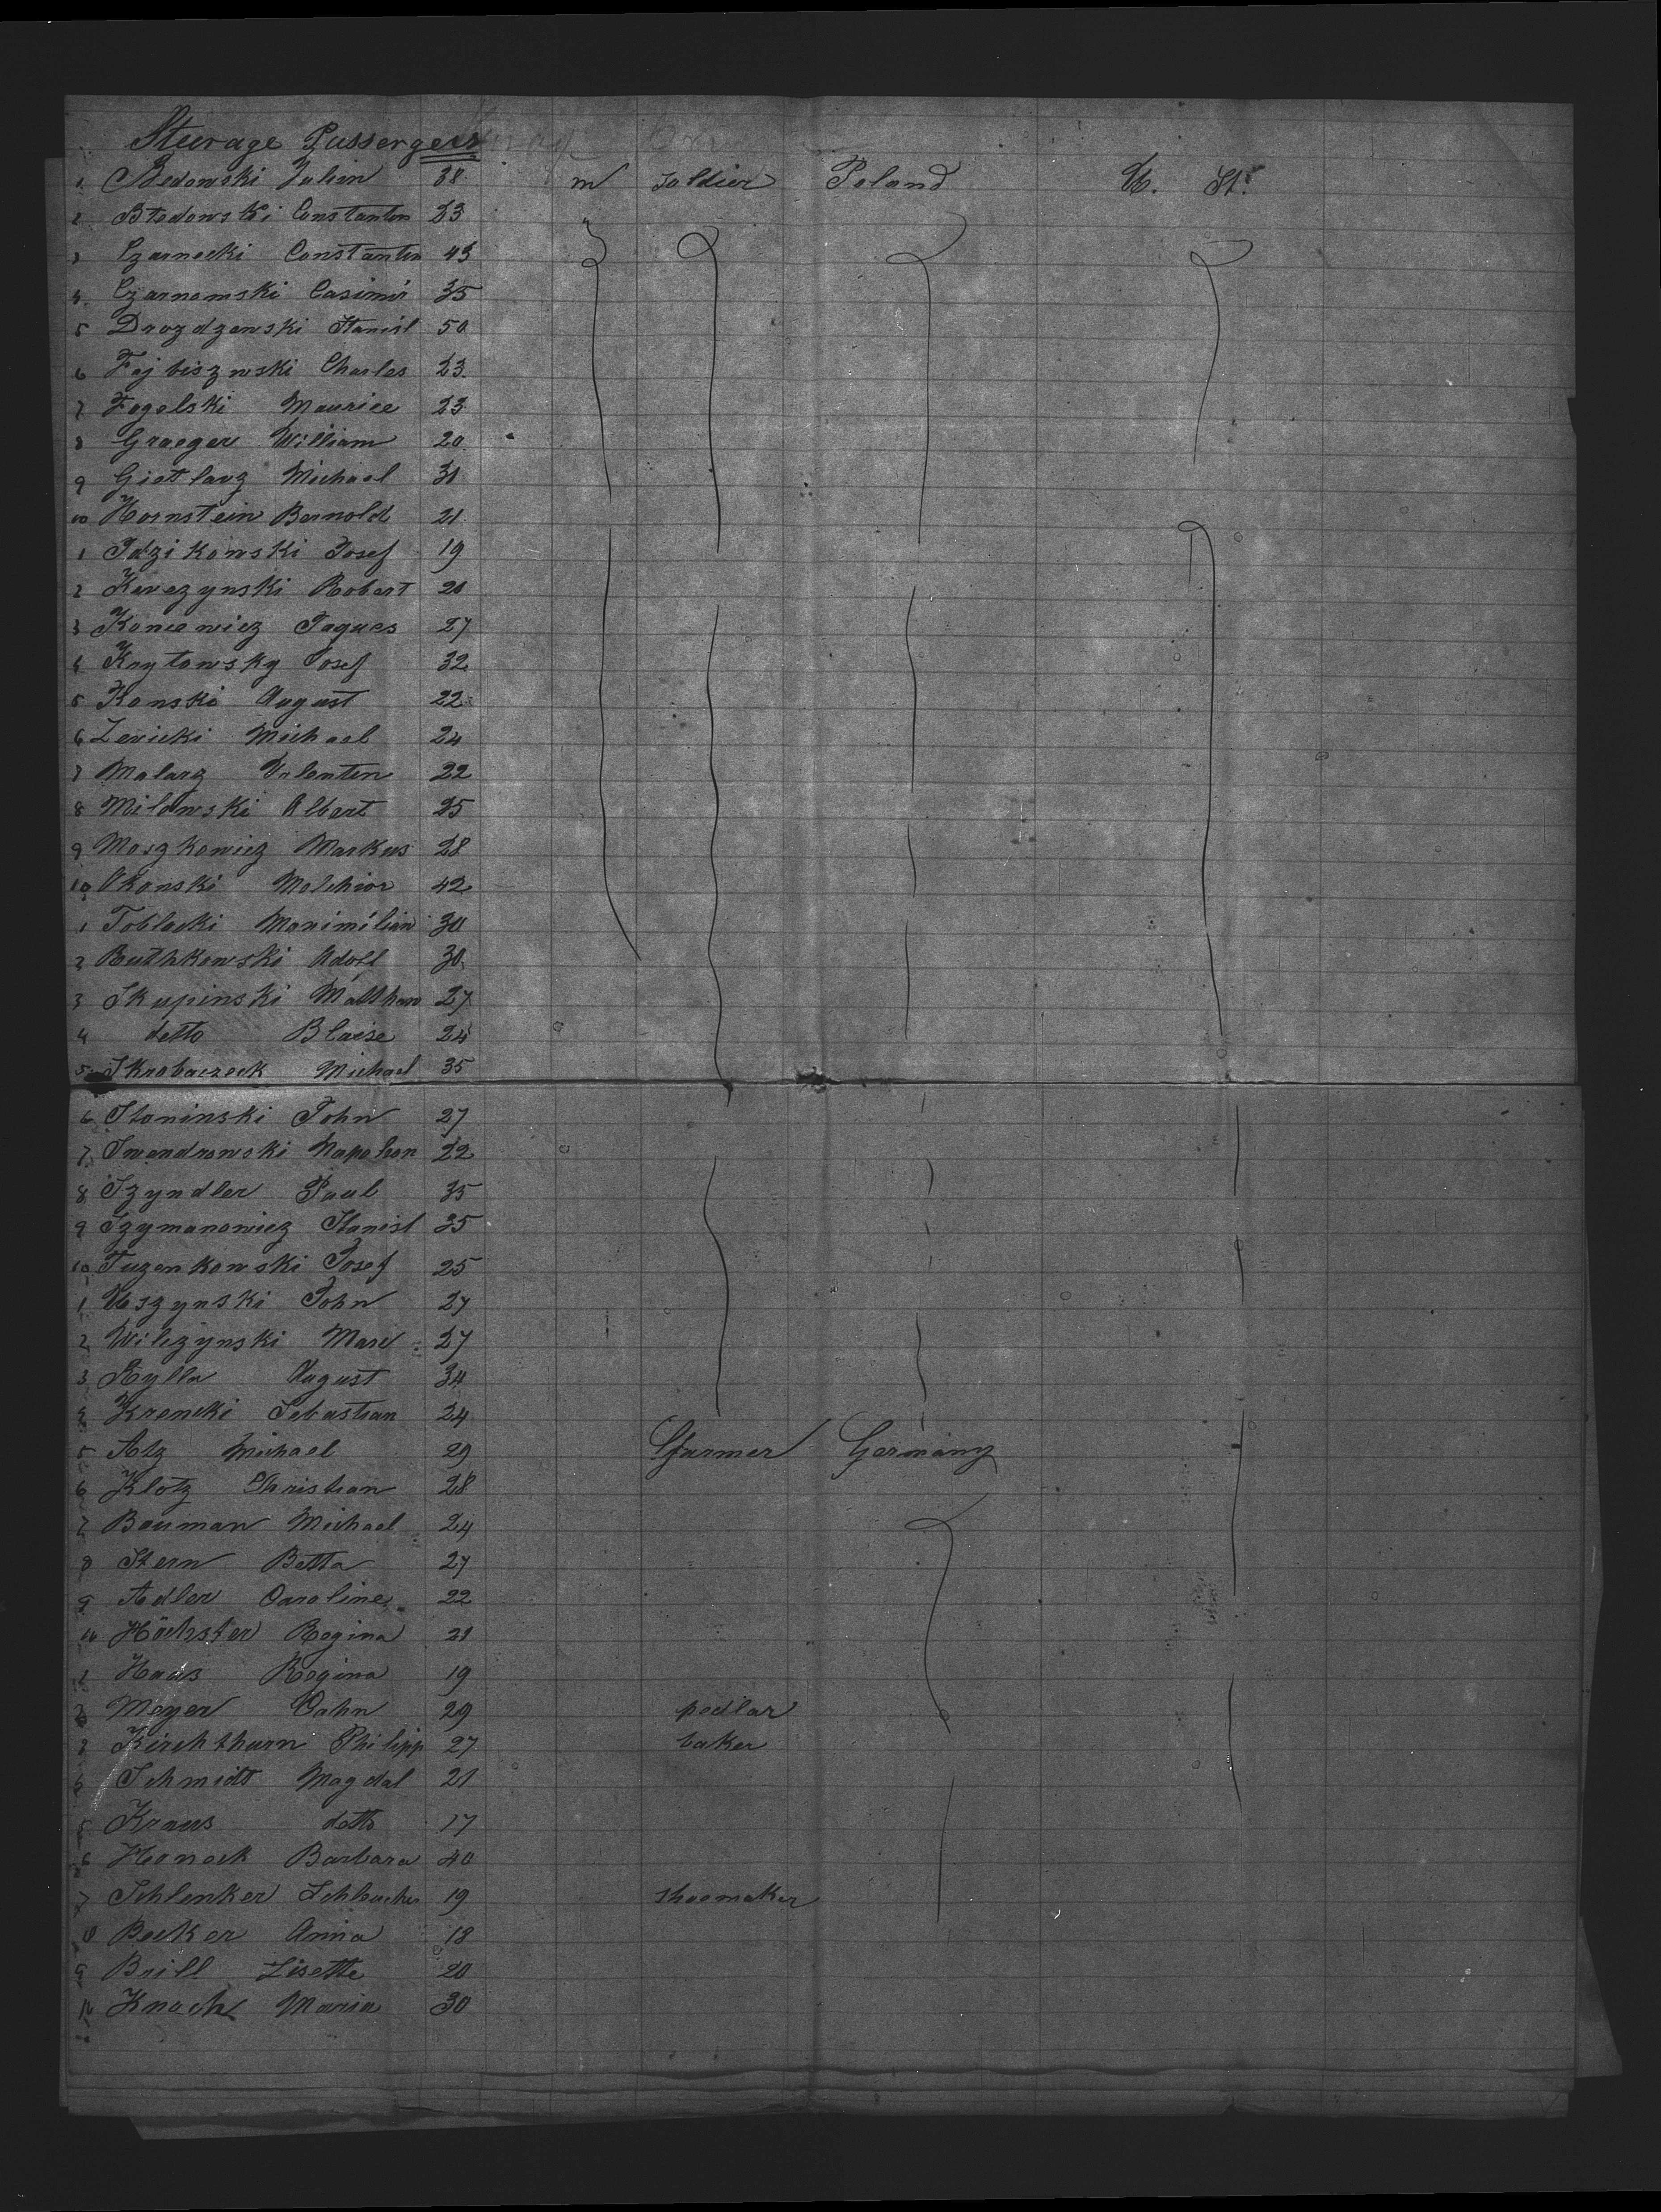 Steerage Passengers
1 Bledowski Julien 38 m soldier Poland U. St.
2 Bledowski Constantin 23 "
3 Czarnecki Constantin 43
4 Czarnomski Casimir 35
5 Drozdzenski Stanisl 50
6 Fajbiszewski Charles 23
7 Fogelski Maurice 23
8 Graeger William 20
9 Michael 31
10 Hornstein Bernold 21
1 Idzikowski Josef 19
2 Robert 20
3 Koniewicz Jaques 27
4 Krytowsky Josef 32
5 Konski August 22
6 Levicki Michael 24
7 Malarz Valenten 22
8 Milowski Albert 25
9 Moszkowicz Markus 28
10 Okonski Melchior 42
1 Toblocki Maximilian 30
2 Ruthkowski Adolf 30
3 Skupinski Matthew 27
4 detto Blaise 24
5 Skrobaczeck Michael 35
6 Stoninski John 27
7 Swendrowski Napoleon 22
8 Szyndler Paul 35
9 Szymanowicz Stanisl 35
10 Tuzenkowski Josef 25
1 Uszynski John 27
2 Wilczynski Marc 27
3 Rylla August 34
4 Krencki Sebastian 24
5 Michael 29 farmer Germany
6 Klotz Christian 28
7 Bauman Michael 24
8 Stern Betta 27
9 Adler Caroline 22
10 Höchster Regina 21
1 Haas Regina 19
2 Meyer Cahn 29 pedlar
3 Kirchthurn Philipp 27 baker
4 Schmidt Magdal 21
5 Kraus detto 17
6 Honeck Barbara 40
7 Schlenker 19 shoemaker
8 Becker Anna 18
9 Brill Lisette 20
10 Knoch Maria 30